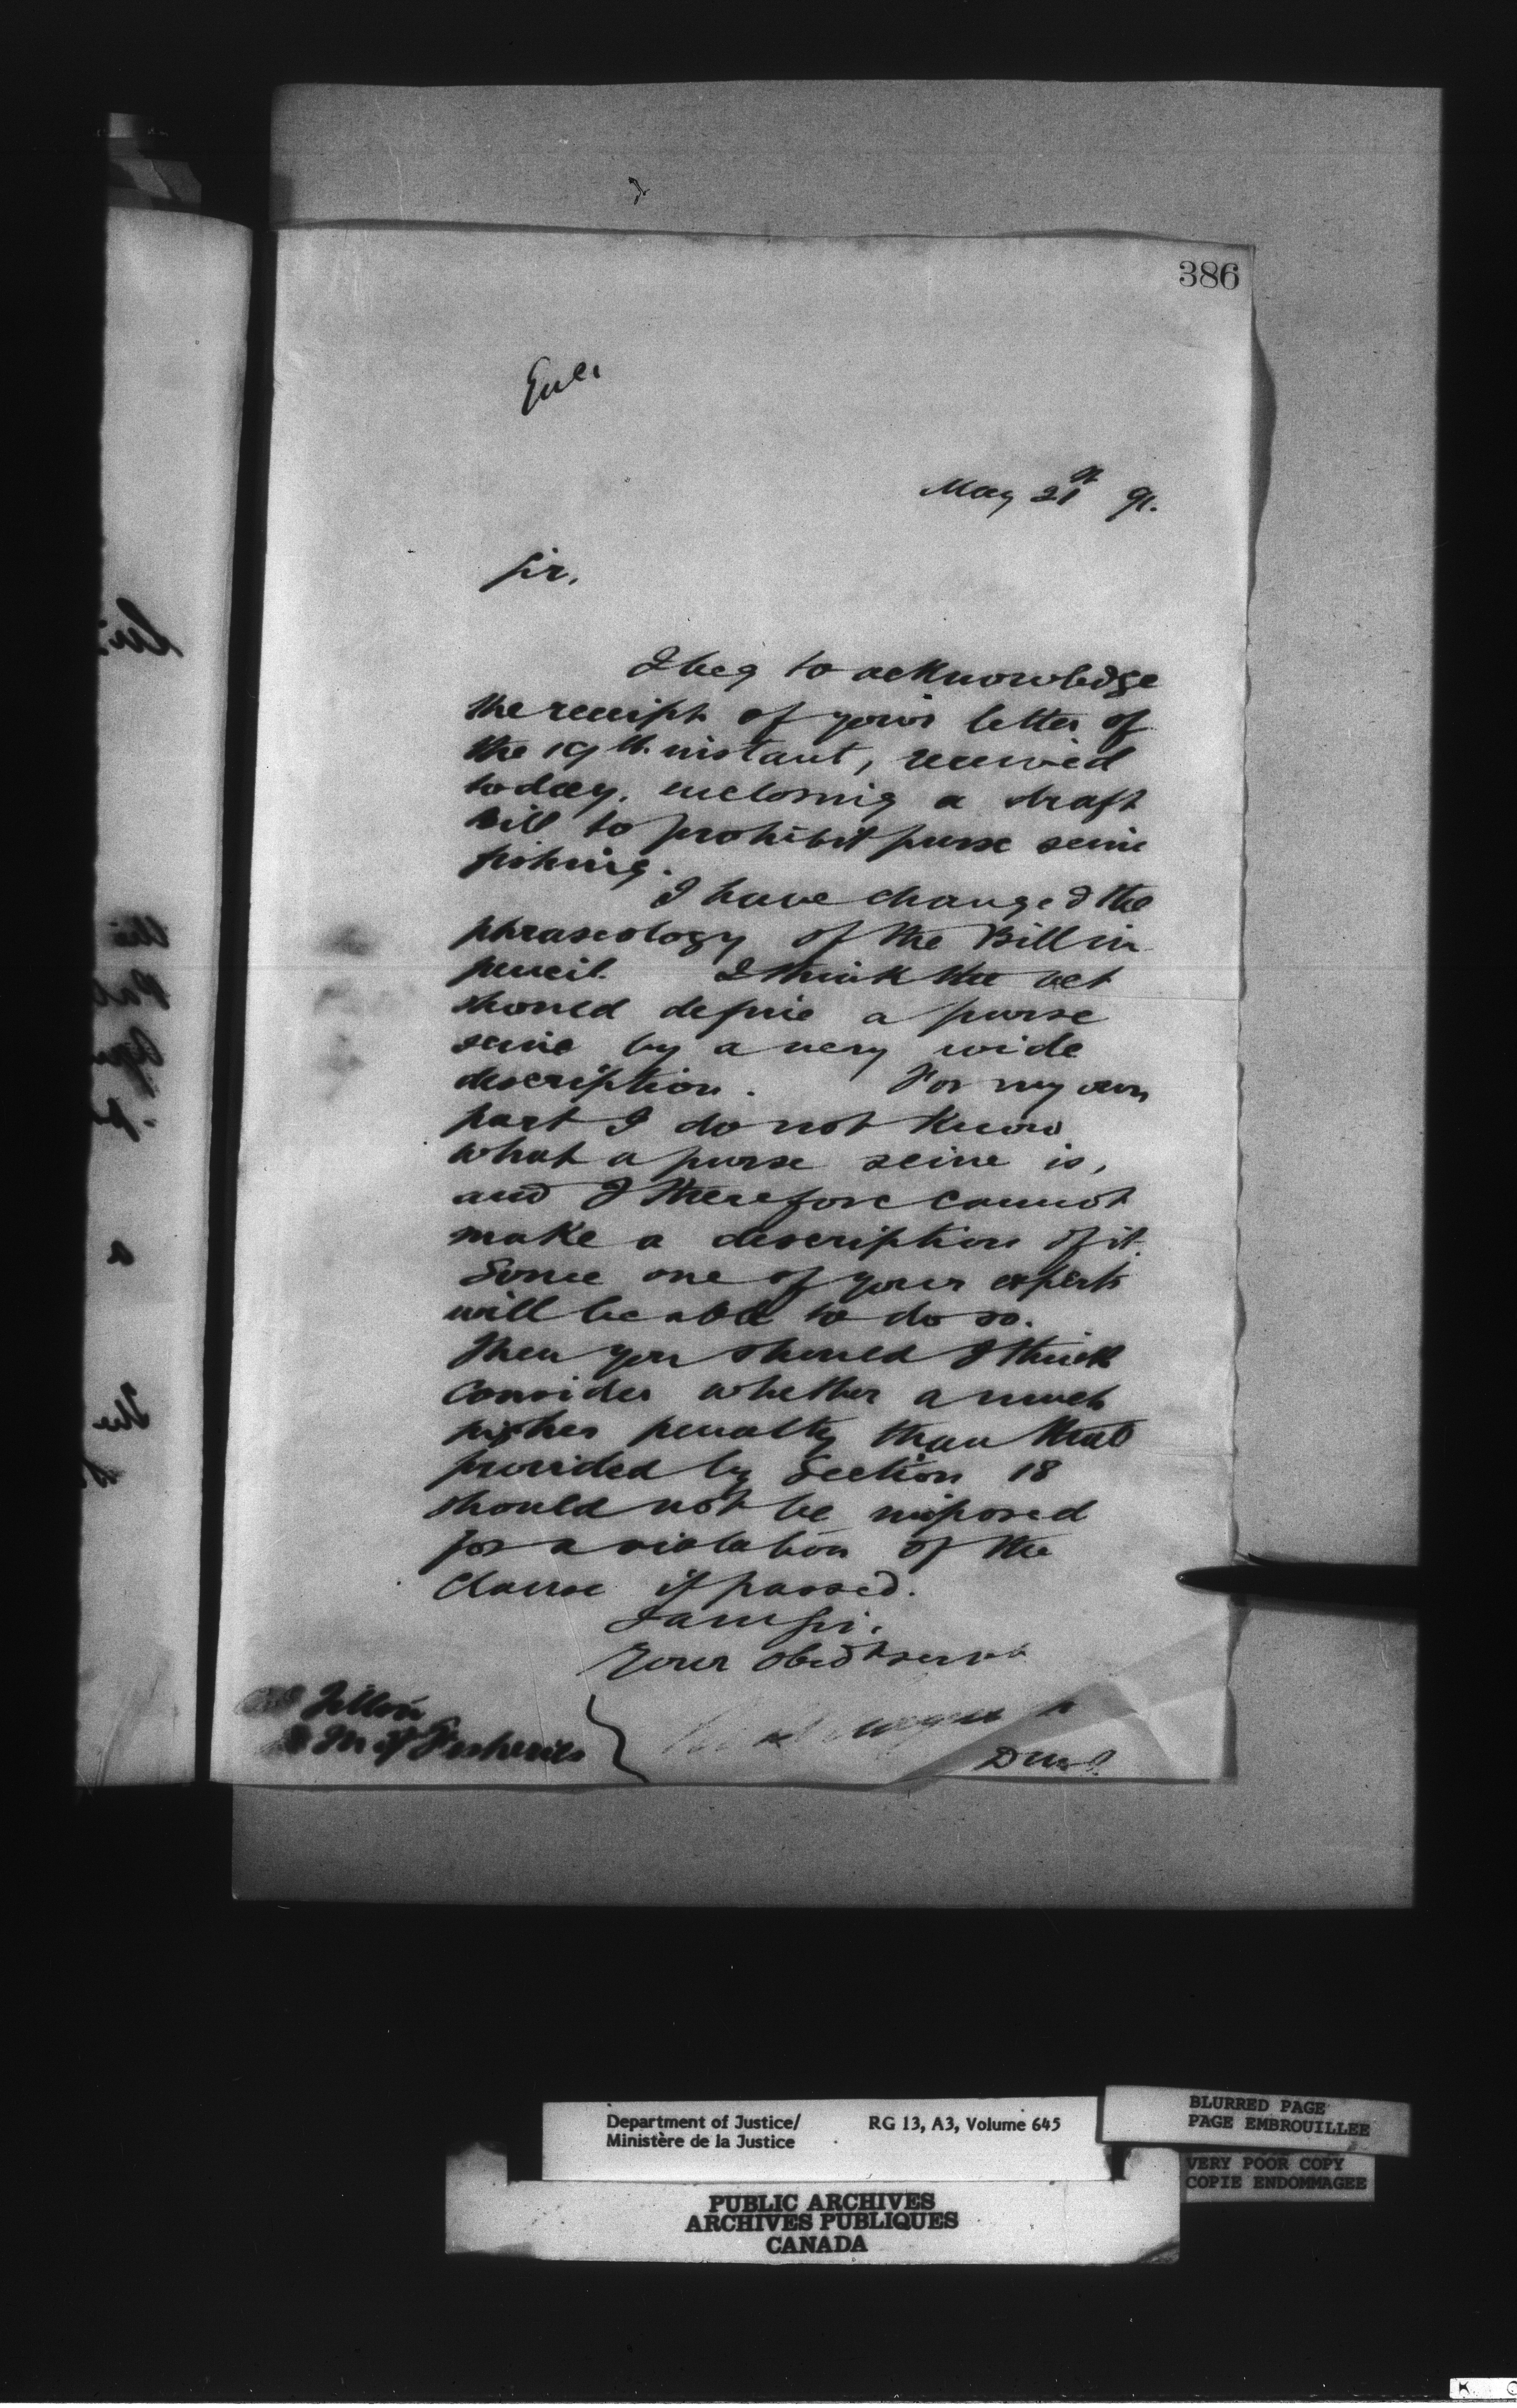 386
Encl
May 21st 91.
Sir,
I beg to acknowledge
the receipt of your letter of
the 19th instant, received
today, enclosing a draft
Bill to prohibit purse seine
fishing.
I have changed the
phraseology of the Bill in
pencil. I think the act
should define a purse
seine by a very wide
description. For my own
part I do not know
what a purse seine is,
and I therefore cannot
make a description of it.
Some one of your experts
will be able to do so.
Then you should I think
consider whether a much
higher penalty than that
provided by Section 18
should not be imposed
for a violation of the
clause if passed.
I am Sir,
Your obedt servt
Tilton
D M of Fisheries
D M J.
Department of Justice/
Ministère de la Justice
RG 13, A3, Volume 645
BLURRED PAGE
PAGE EMBROUILLEE
VERY POOR COPY
COPIE ENDOMMAGEE
PUBLIC ARCHIVES
ARCHIVES PUBLIQUES
CANADA